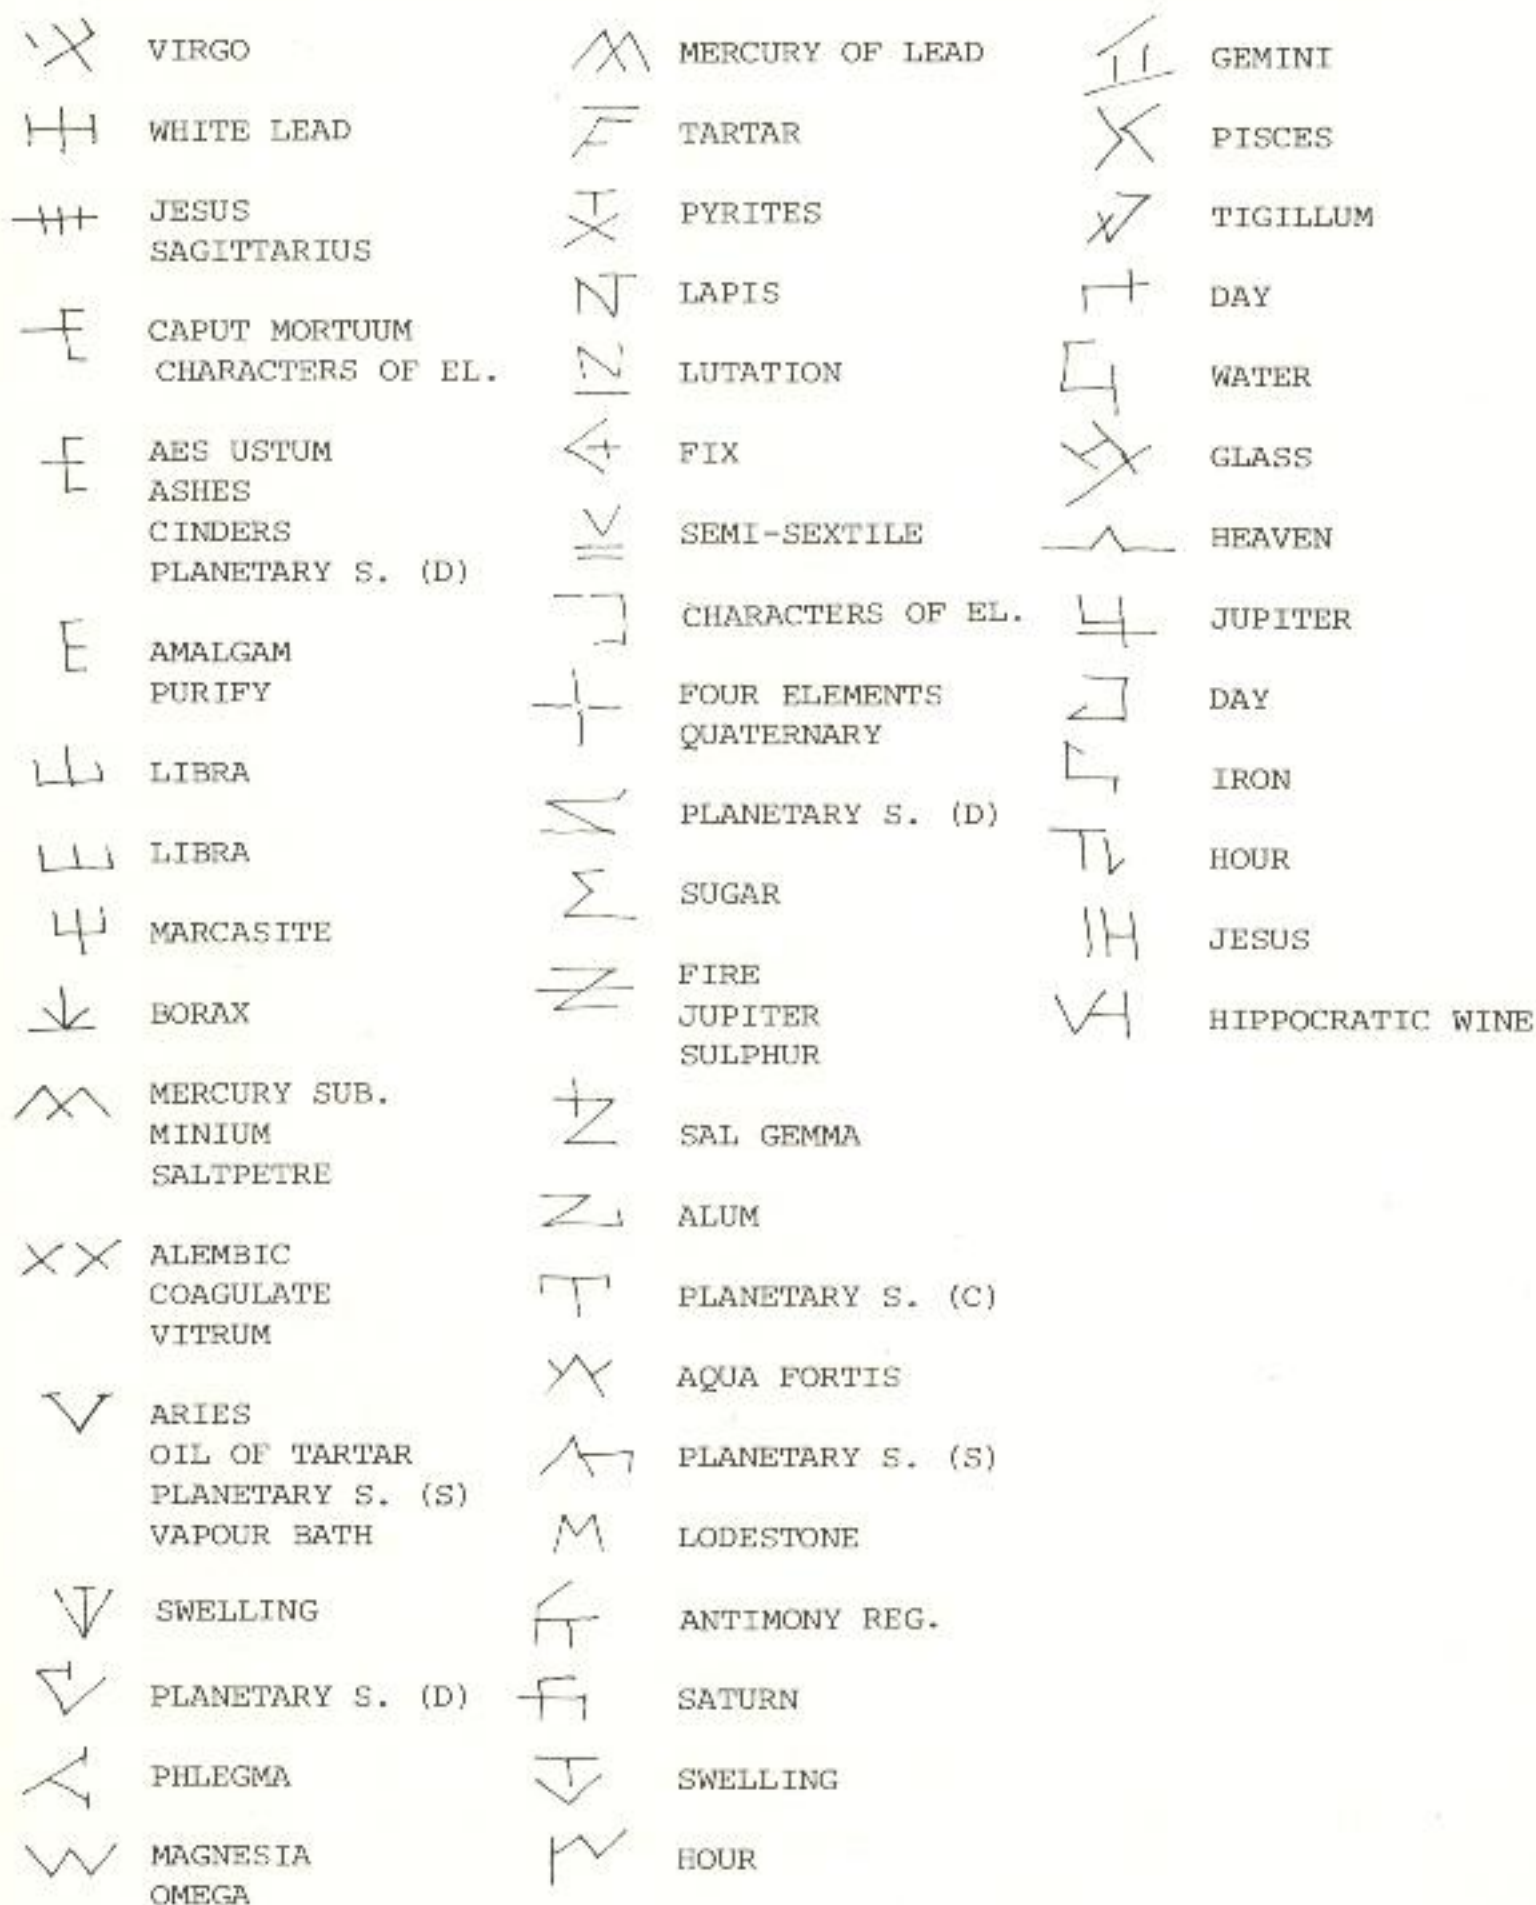 VIRGO
WHITE LEAD
JESUS
SAGITTARIUS
CAPUT MORTUUM
CHARACTERS OF EL.
AES USTUM
ASHES
CINDERS
PLANETARY S. (D)
AMALGAM
PURIFY
LIBRA
LIBRA
MARCASITE
BORAX
MERCURY SUB.
MINIUM
SALTPETRE
ALEMBIC
COAGULATE
VITRUM
ARIES
OIL OF TARTAR
PLANETARY S. (S)
VAPOUR BATH
SWELLING
PLANETARY S. (D)
PHLEGMA
MAGNESIA
OMEGA
MERCURY OF LEAD
TARTAR
PYRITES
LAPIS
LUTATION
FIX
SEMI-SEXTILE
CHARACTERS OF EL.
FOUR ELEMENTS
QUATERNARY
PLANETARY S. (D)
SUGAR
FIRE
JUPITER
SULPHUR
SAL GEMMA
ALUM
PLANETARY S. (C)
AQUA FORTIS
PLANETARY S. (S)
LODESTONE
ANTIMONY REG.
SATURN
SWELLING
HOUR
GEMINI
PISCES
TIGILLUM
DAY
WATER
GLASS
HEAVEN
JUPITER
DAY
IRON
HOUR
JESUS
HIPPOCRATIC WINE